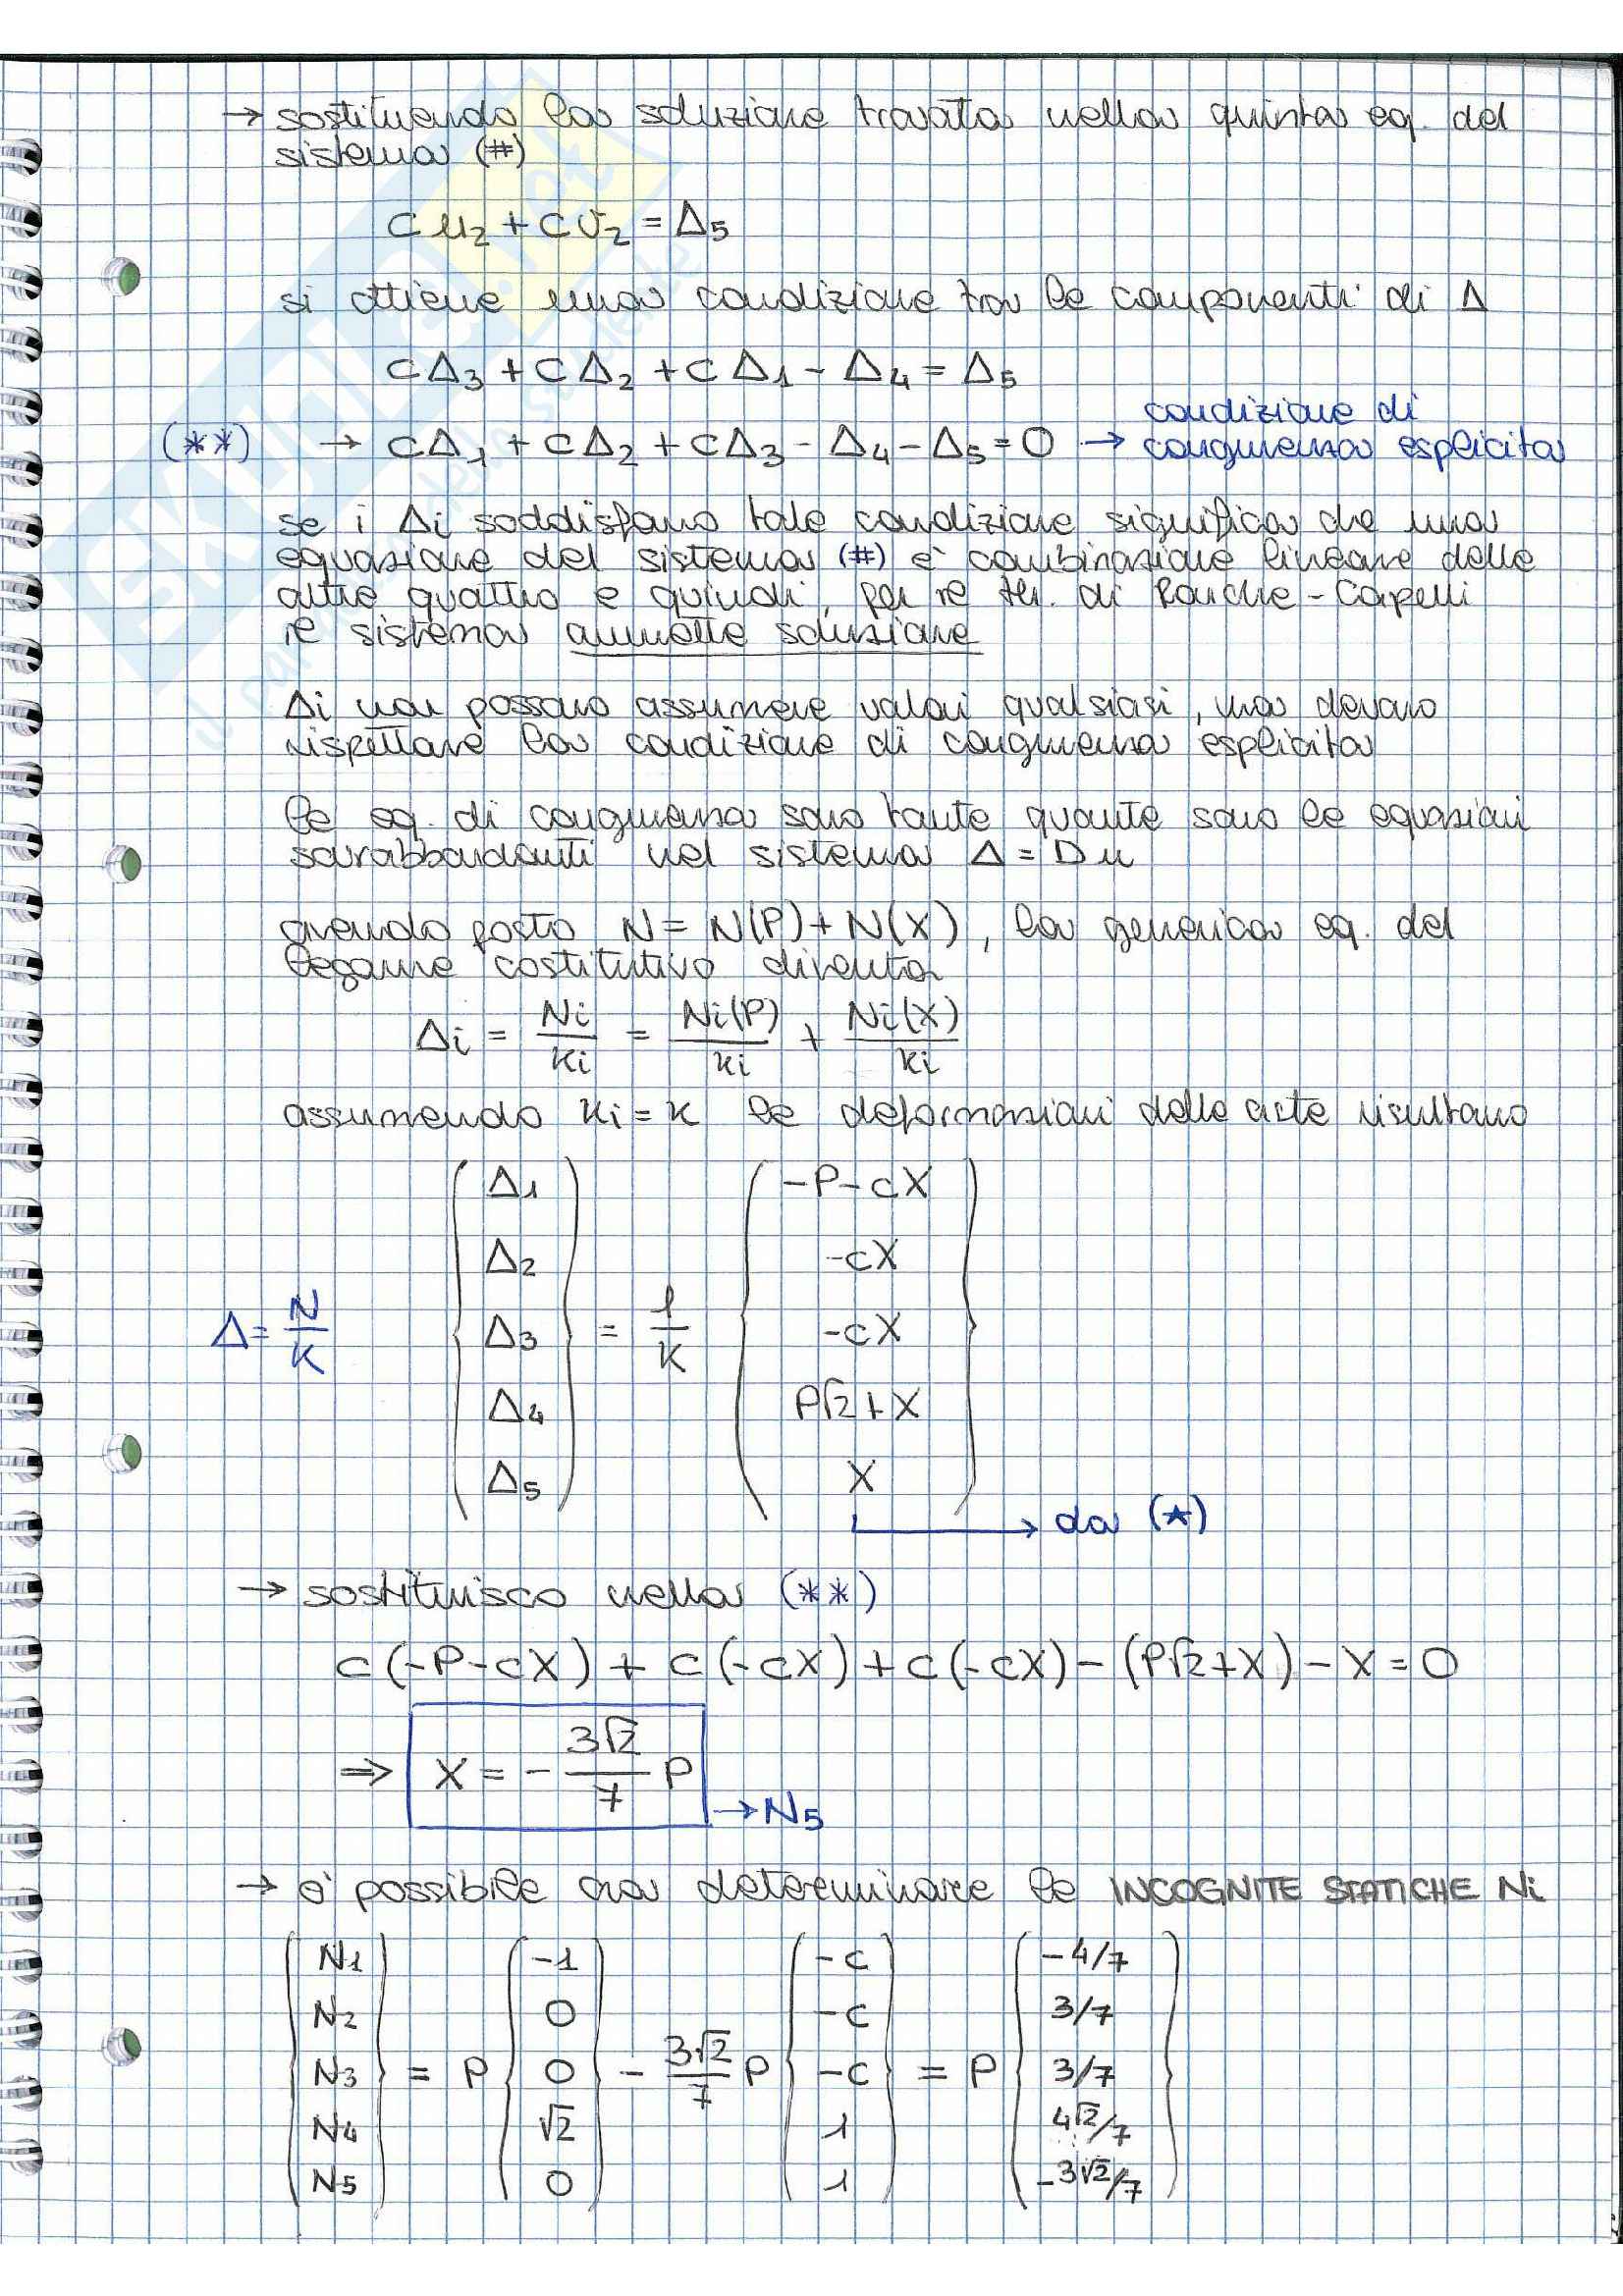 → sostituendo la soluzione trovata nella quinta eq. del
sistema (#)
c u₂ + c v₂ = Δ₅
si ottiene una condizione tra le componenti di Δ
cΔ₃ + cΔ₂ + cΔ₁ - Δ₄ = Δ₅
(**) → cΔ₁ + cΔ₂ + cΔ₃ - Δ₄ - Δ₅ = 0 → condizione di
congruenza esplicita
se i Δi soddisfano tale condizione significa che una
equazione del sistema (#) è combinazione lineare delle
altre quattro e quindi, per il th. di Rouche-Capelli
il sistema ammette soluzione
Δi non possono assumere valori qualsiasi, ma devono
rispettare la condizione di congruenza esplicita
le eq. di congruenza sono tante quante sono le equazioni
sovrabbondanti nel sistema Δ = D u
avendo posto N = N(P) + N(X), la generica eq. del
legame costitutivo diventa
Δi = Ni/ki = Ni(P)/ki + Ni(X)/ki
assumendo ki = k le deformazioni delle aste risultano
Δ = N/K
(Δ₁ Δ₂ Δ₃ Δ₄ Δ₅) = 1/K (-P-cX -cX -cX P√2+X X)
→ da (★)
→ sostituisco nella (**)
c(-P-cX) + c(-cX) + c(-cX) - (P√2+X) - X = 0
⇒ X = - 3√2/7 P → N₅
→ è possibile ora determinare le INCOGNITE STATICHE Ni
(N₁ N₂ N₃ N₄ N₅) = P (-1 0 0 √2 0) - 3√2/7 P (-c -c -c 1 1) = P (-4/7 3/7 3/7 4√2/7 -3√2/7)